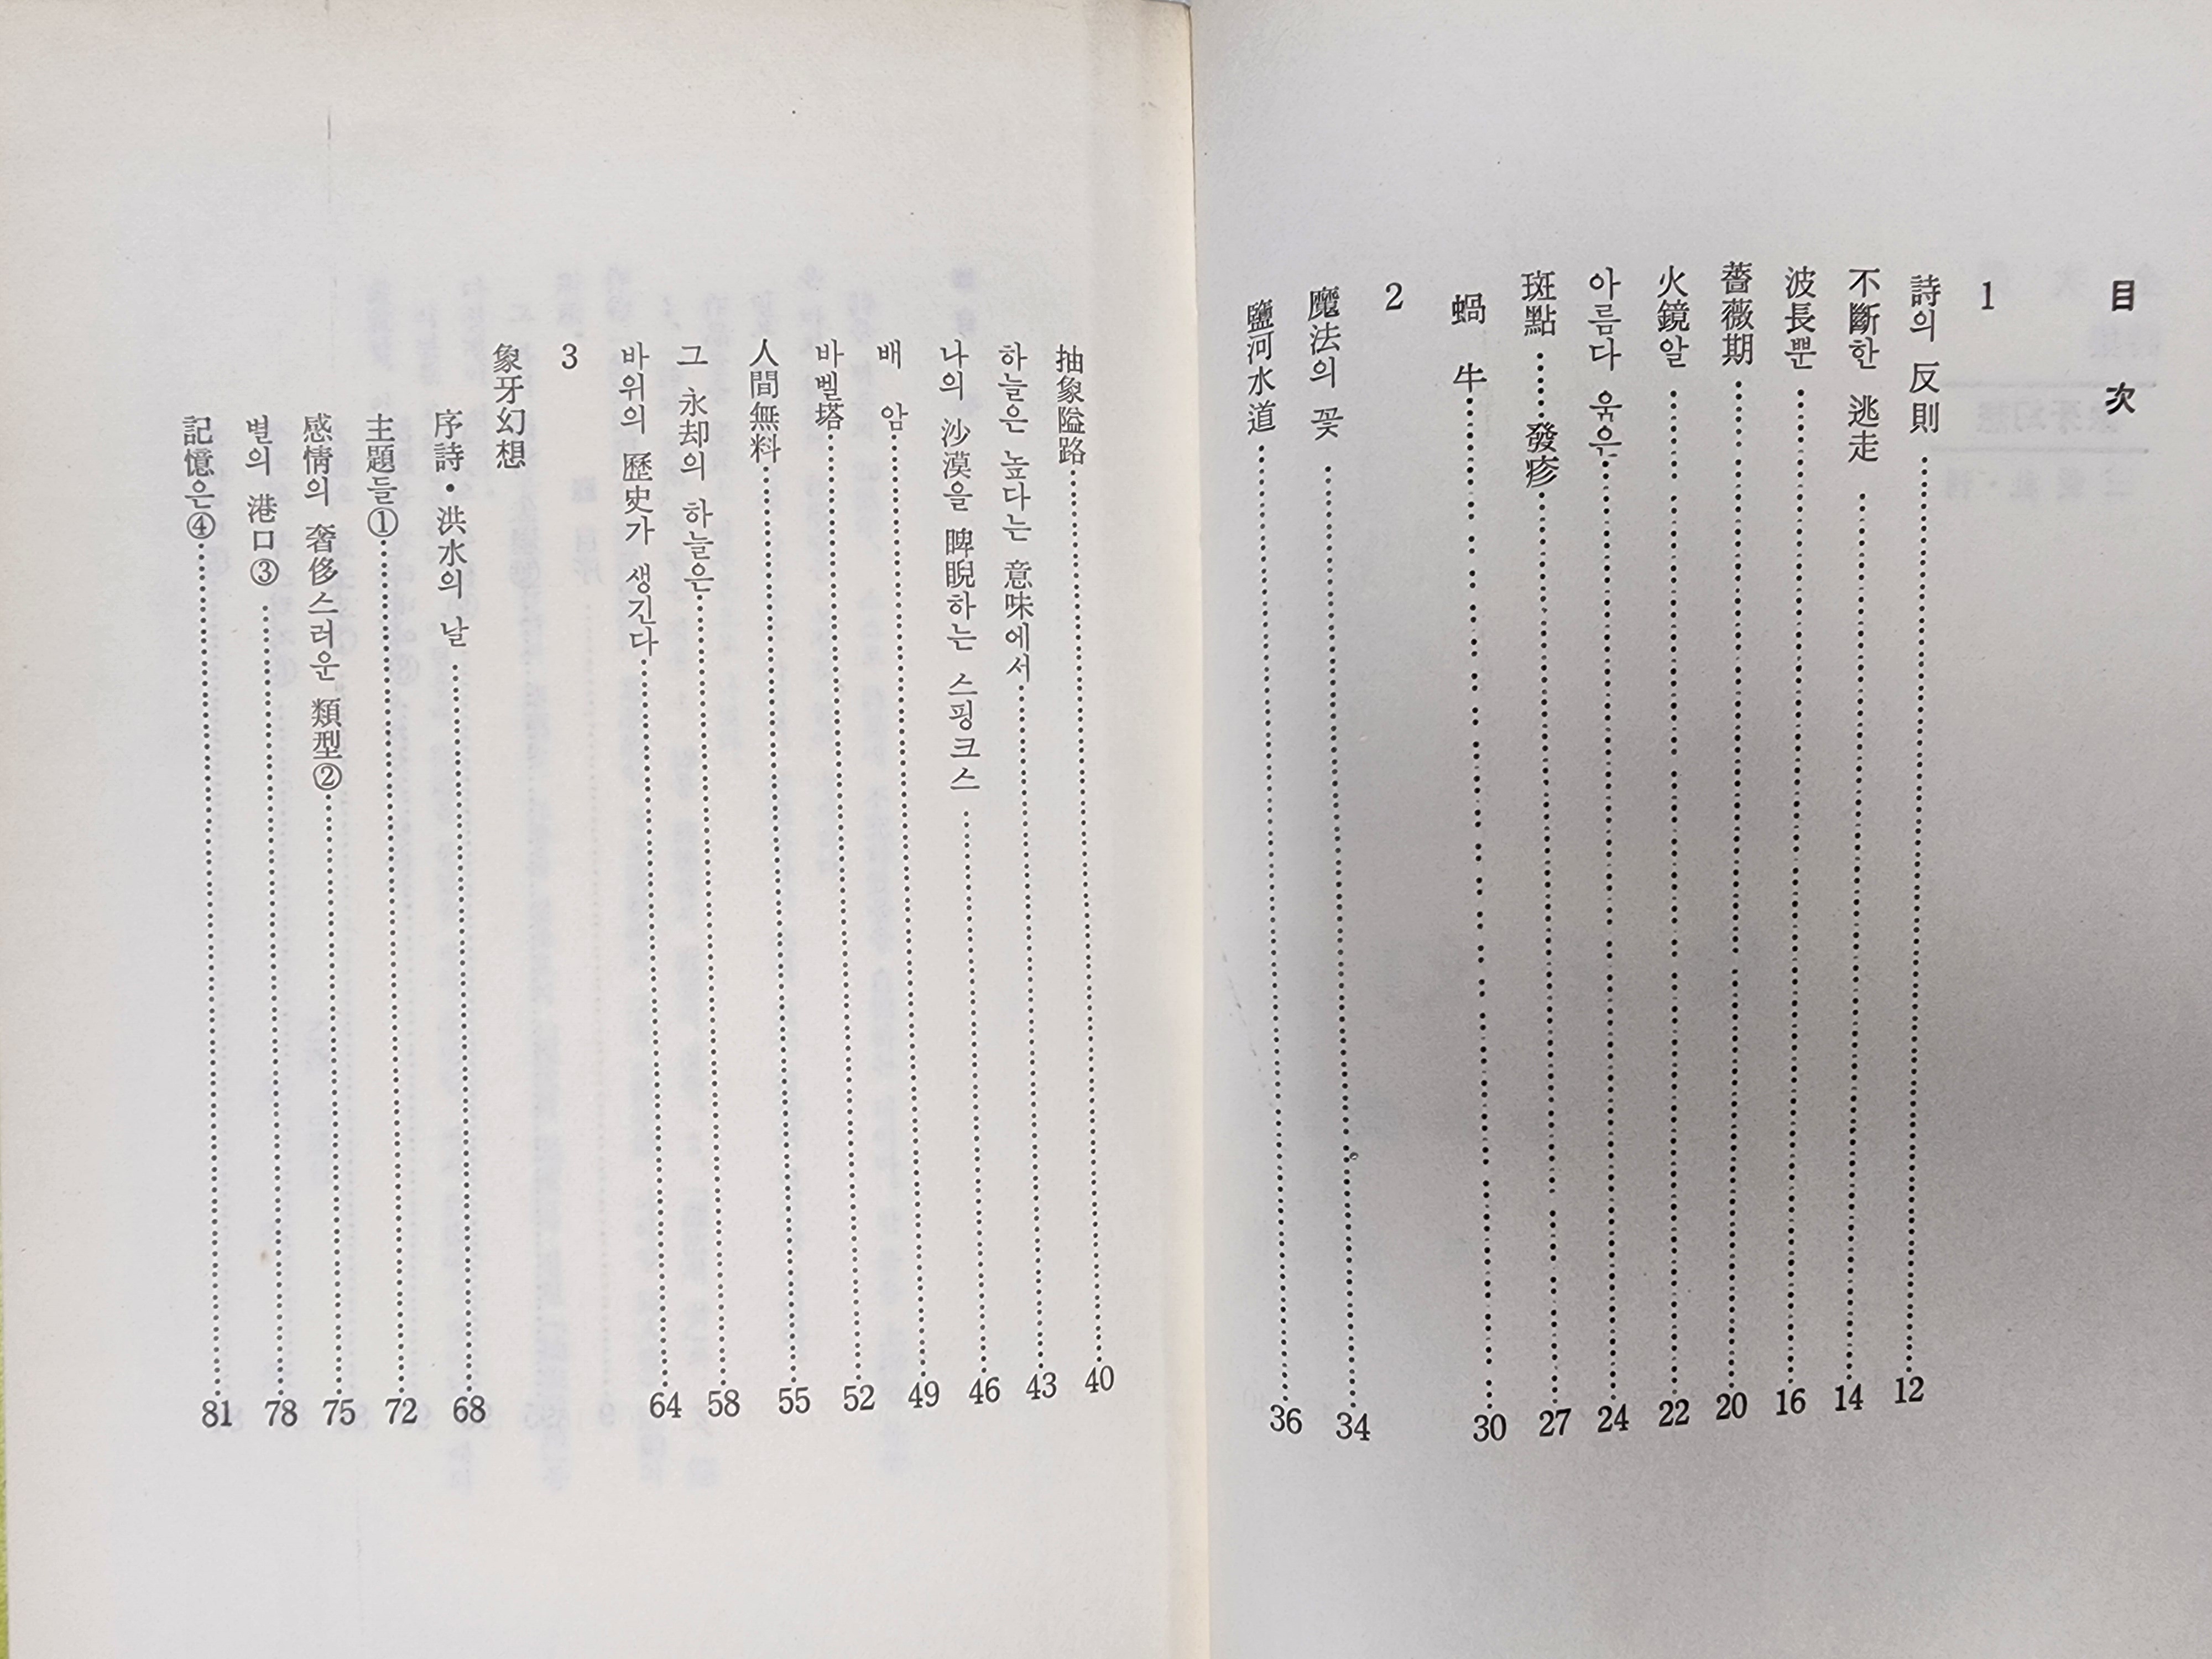 目 次
1
詩의 反則……12
不斷한 逃走……14
波長뿐……16
薔薇期……20
火鏡알……22
아름다웂은……24
斑點……發疹……27
蝸 牛……30
2
魔法의 꽃……34
鹽河水道……36
抽象隘路……40
하늘은 높다는 意味에서……43
나의 沙漠을 睥睨하는 스핑크스……46
배 암……49
바벨塔……52
人間無料……55
그 永却의 하늘은……58
바위의 歷史가 생긴다……64
3
象牙幻想
序詩・洪水의 날……68
主題들①……72
感情의 奢侈스러운 類型②……75
별의 港口③……78
記憶은④……81